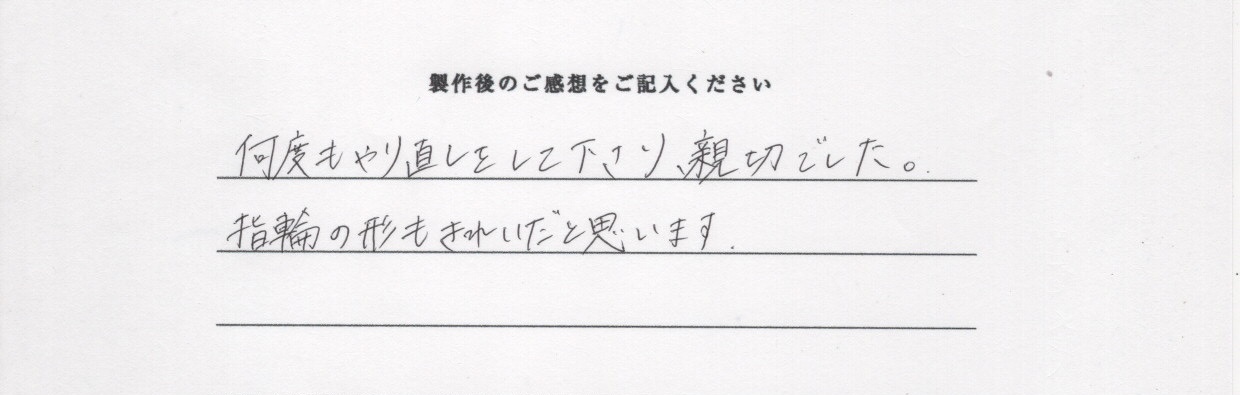 製作後のご感想をご記入ください
何度もやり直しをして下さり、親切でした。
指輪の形もきれいだと思います.